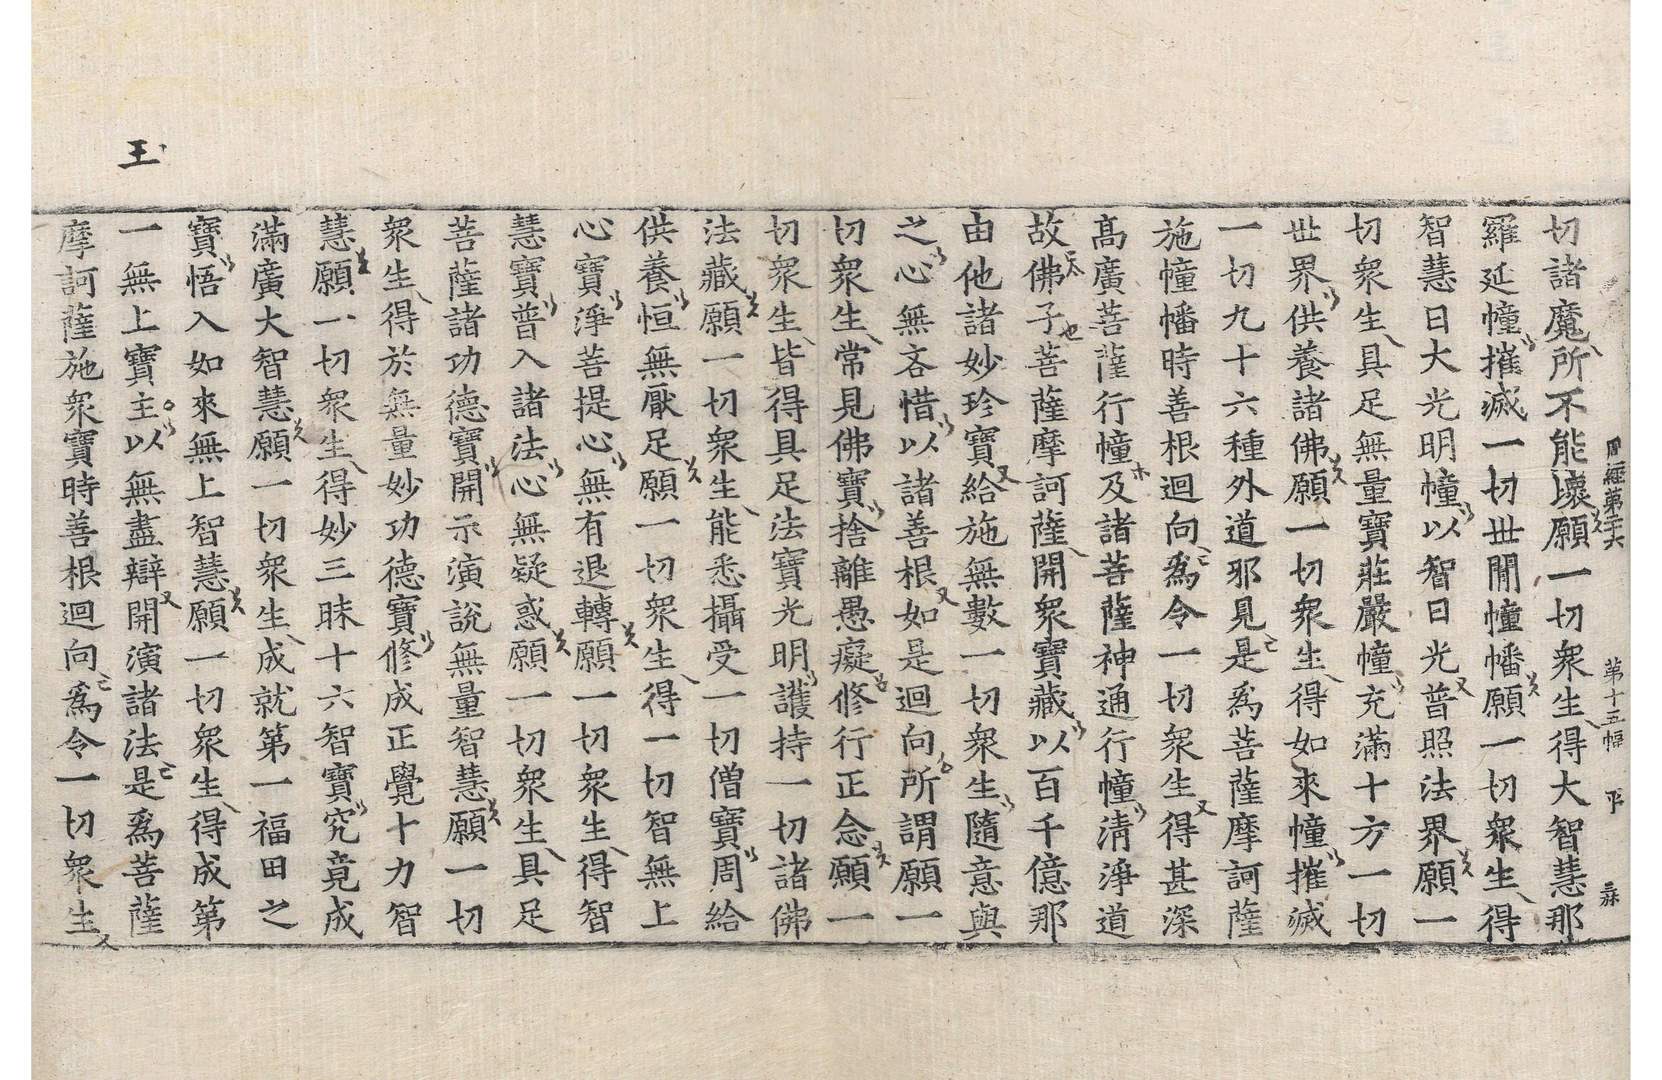 周經第二十六 第十五幅 平 麻
切諸魔所不能壞願一切衆生得大智慧那
羅延幢摧滅一切世間幢幡願一切衆生得
智慧日大光明幢以智日光普照法界願一
切衆生具足無量寶莊嚴幢充滿十方一切
世界供養諸佛願一切衆生得如來幢摧滅
一切九十六種外道邪見是爲菩薩摩訶薩
施幢幡時善根迴向爲令一切衆生得甚深
高廣菩薩行幢及諸菩薩神通行幢淸淨道
故佛子菩薩摩訶薩開衆寶藏以百千億那
由他諸妙珍寶給施無數一切衆生隨意與
之心無吝惜以諸善根如是迴向所謂願一
切衆生常見佛寶捨離愚癡修行正念願一
切衆生皆得具足法寶光明護持一切諸佛
法藏願一切衆生能悉攝受一切僧寶周給
供養恒無厭足願一切衆生得一切智無上
心寶淨菩提心無有退轉願一切衆生得智
慧寶普入諸法心無疑惑願一切衆生具足
菩薩諸功德寶開示演說無量智慧願一切
衆生得於無量妙功德寶修成正覺十力智
慧願一切衆生得妙三昧十六智寶究竟成
滿廣大智慧願一切衆生成就第一福田之
寶悟入如來無上智慧願一切衆生得成第
一無上寶主以無盡辯開演諸法是爲菩薩
摩訶薩施衆寶時善根迴向爲令一切衆生
王